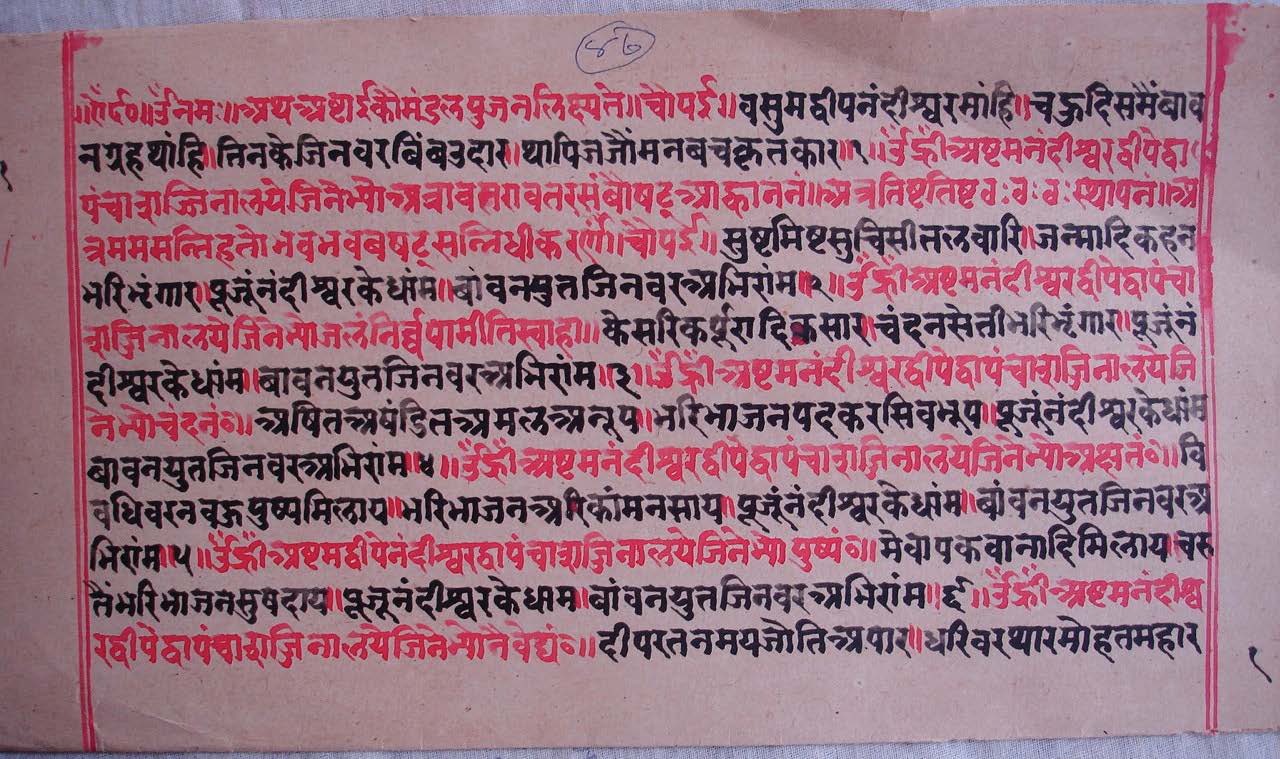 ४७
॥र्द०॥ॐनमः॥अथअष्टाईकौमंदलपुजनलिष्यते॥चौपई॥वसुमद्वीपनंदीश्वरमांहि॥चऊदिसमैंबाव
नग्रहथांहि॥तिनकेजिनवरबिंबउदार॥थापिजजौंमनबचकृतकार॥१॥ॐह्रींअष्टमनंदीश्वरद्वीपेद्वा
पंचाशज्जिनालयेजिनेभ्योअत्रावतरावतरसंबौषट्आह्वाननं॥अत्रतिष्टतिष्टवःवःवःस्थापनं॥अ
त्रममसन्निहतोभवभवबषट्सन्निधीकरणं॥चौपई॥सुष्टमिष्टसुचिसीतलवारि॥जन्मादिकहन
भरिभृंगार॥पूजूंनंदीश्वरकेधांम॥बांवनयुतजिनवरअभिरांम॥२॥ॐह्रींअष्टमनंदीश्वरद्वीपेद्वापंचा
शज्जिनालयेजिनेभ्योजलंनिर्वपामीतिस्वाहा॥केसरिकर्पूरादिकसार॥चंदनसेतीभरिभृंगार॥पुजूंनं
दीश्वरकेधांम॥बावनयुतजिनवरअभिरांम॥३॥ॐह्रींअष्टमनंदीश्वरद्वीपेद्वापंचाशज्जिनालयेजि
नेभ्योचंदनं०॥अषितअषंडितअमलअनूप॥भरिभाजनपदकरसिवभूप॥पूजूंनंदीश्वरकेधांम
बावनयुतजिनवरअभिरांम॥४॥ॐह्रींअष्टमनंदीश्वरद्वीपेद्वापंचाशज्जिनालयेजिनेभ्योअक्षतं०॥वि
वधिवरनबऊपुष्पमिलाय॥भरिभाजनअरिकांमनसाय॥पूजूंनंदीश्वरकेधांम॥बांवनयुतजिनवरअ
भिरांम॥५॥ॐह्रींअष्टमद्वीपेनंदीश्वरद्वापंचाशज्जिनालयेजिनेभ्योपुष्पं०॥मेवापकवानादिमिलाय॥चरु
तैंभरिभाजनसुषदाय॥पूजूनंदीश्वरकेधाम॥बांवनयुतजिनवरअभिरांम॥६॥ॐह्रींअष्टमनंदीश्व
रद्वीपेद्वापंचाशज्जिनालयेजिनेभ्योनैवेद्यं०॥दीपरतनमयजोतिअपार॥धरिवरथारमोहतमहार
१